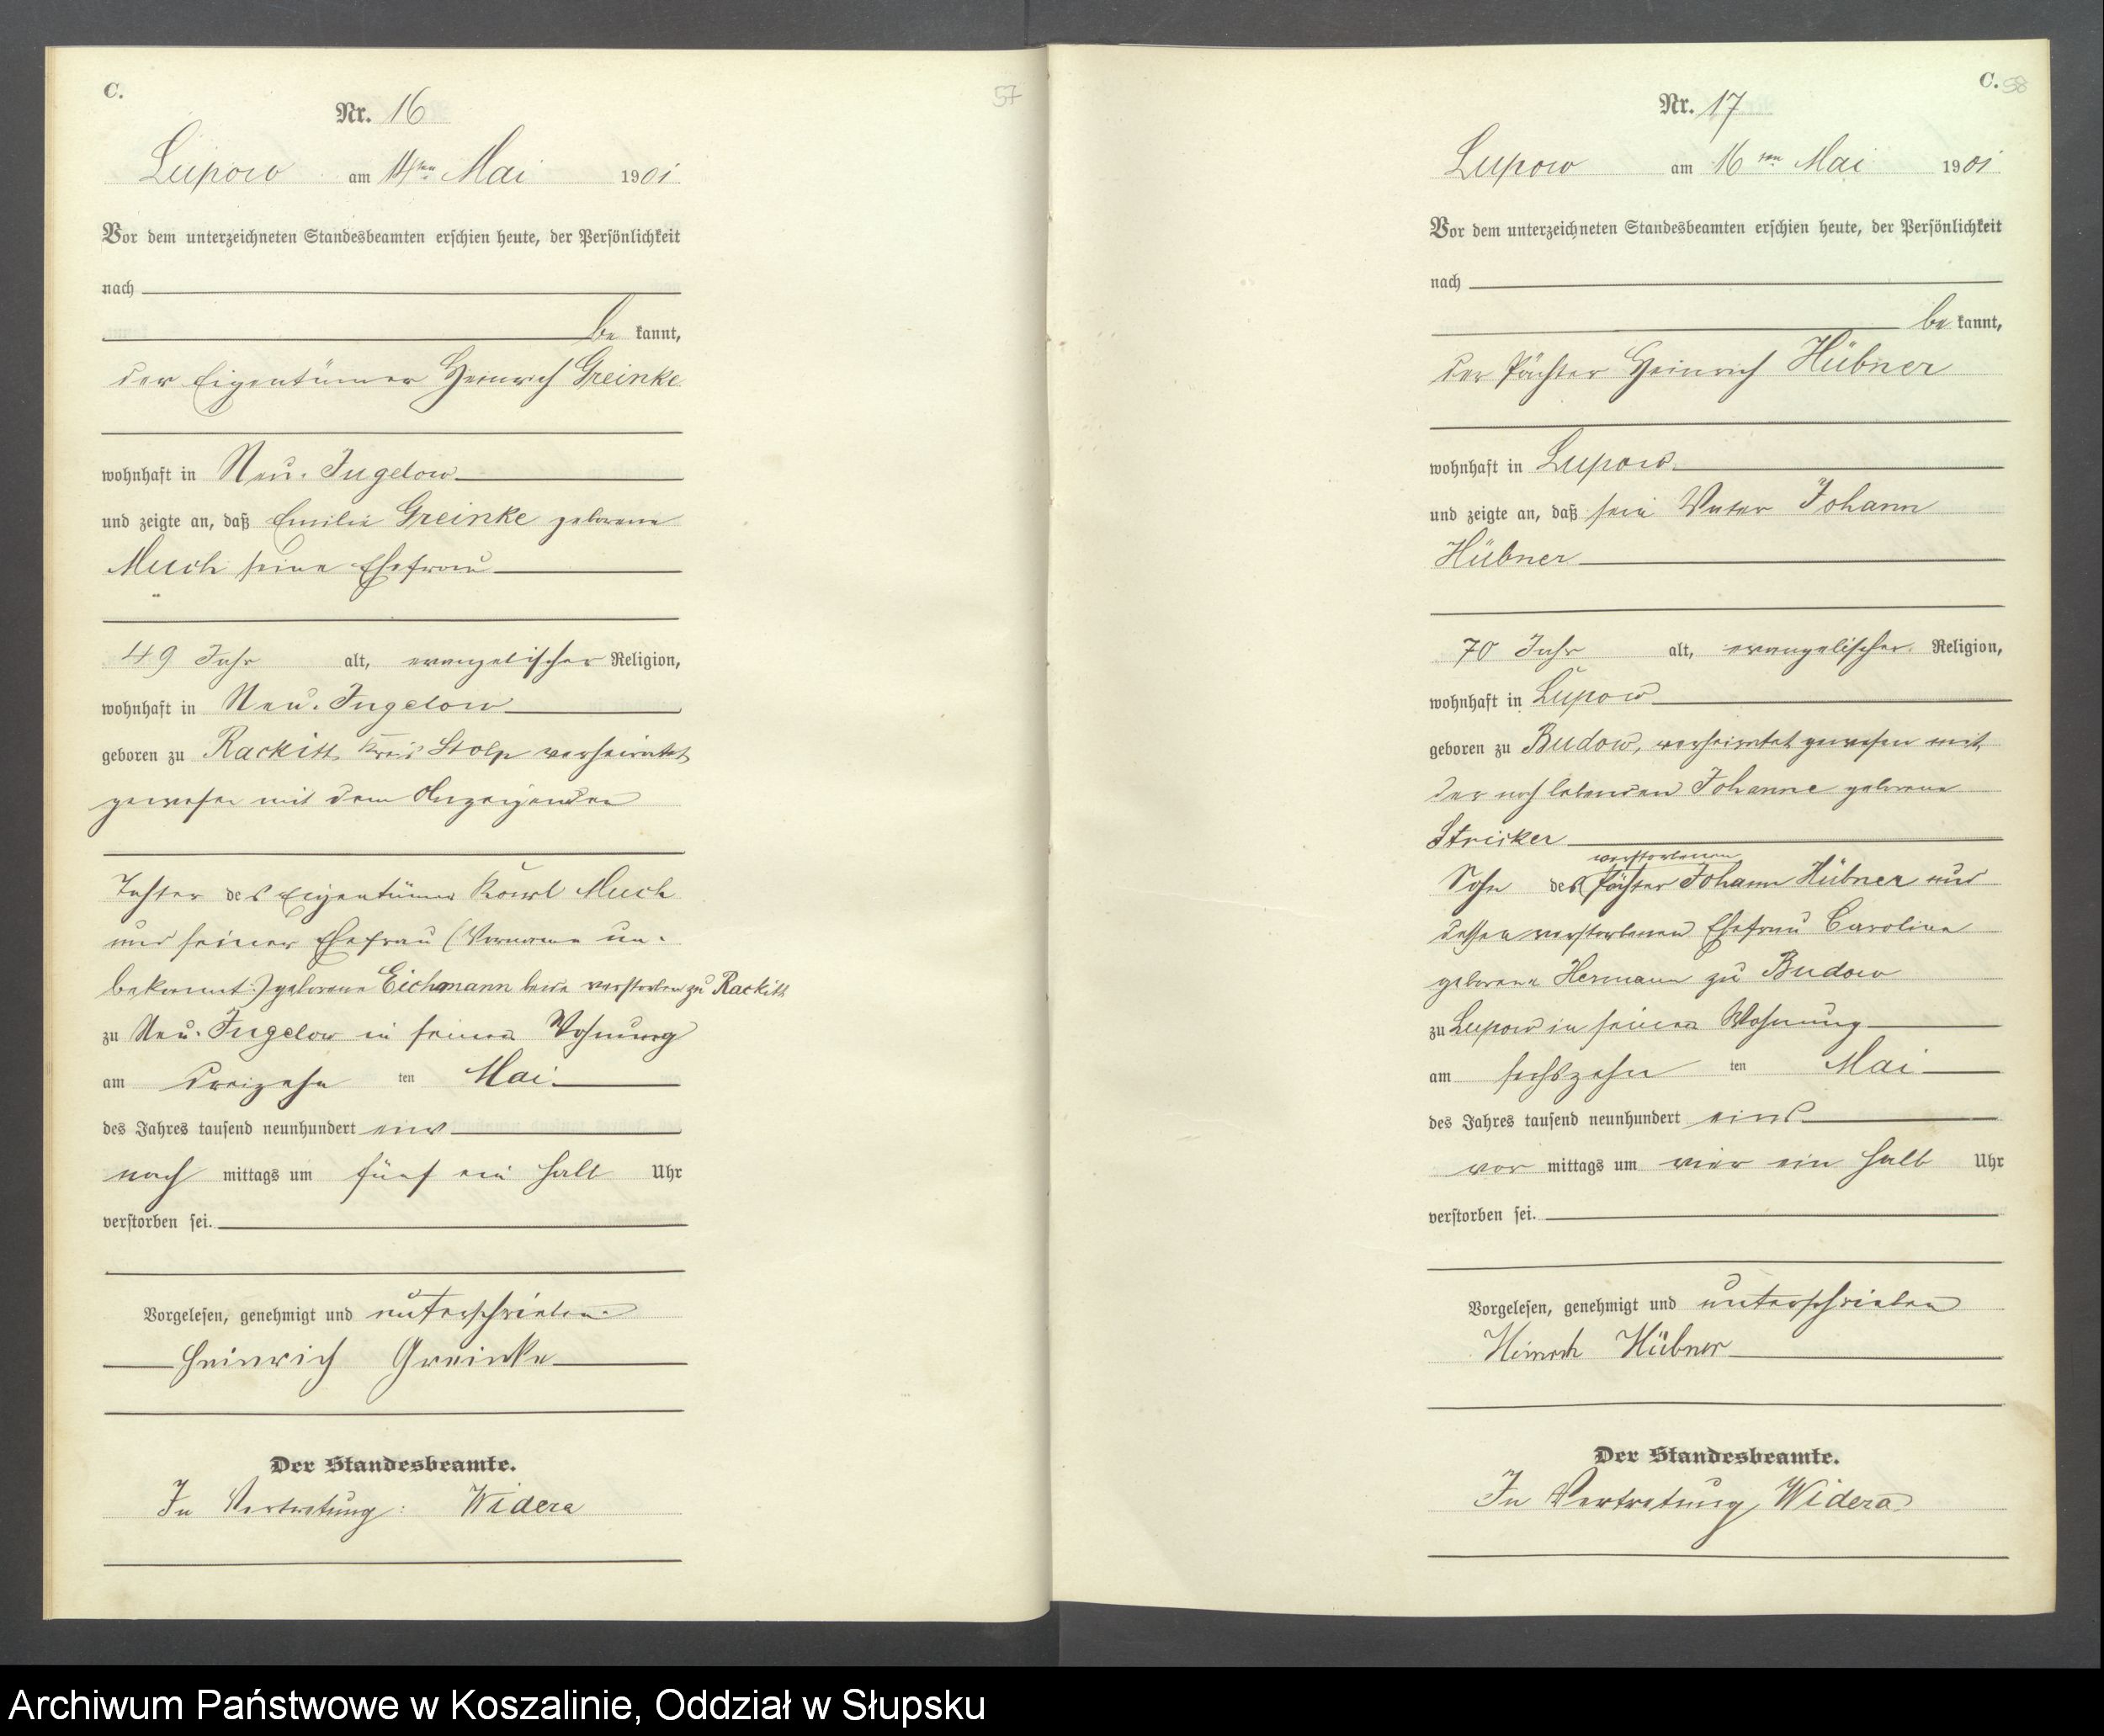 C.
57
Nr. 16
Lupow am 14ten Mai 1901
Vor dem unterzeichneten Standesbeamten erschien heute, der Persönlichkeit
nach
be kannt,
der Eigentümer Heinrich Greinke
wohnhaft in Neu-Jugelow
und zeigte an, daß Emilie Greinke geborene
Much seine Ehefrau
49 Jahr alt, evangelischer Religion,
wohnhaft in Neu-Jugelow
geboren zu Rackitt Kreis Stolp verheiratet
gewesen mit dem Anzeigenden
Tochter des Eigentümers Karl Much
und seiner Ehefrau (Vorname un-
bekannt) geborene Eichmann beide verstorben zu Rackitt
zu Neu-Jugelow in seiner Wohnung
am dreizehn ten Mai
des Jahres tausend neunhundert eins
nach mittags um fünf ein halb Uhr
verstorben sei.
Vorgelesen, genehmigt und unterschrieben
Heinrich Greinke
Der Standesbeamte.
In Vertretung: Widera
C. 58
Nr. 17
Lupow am 16ten Mai 1901
Vor dem unterzeichneten Standesbeamten erschien heute, der Persönlichkeit
nach
be kannt,
der Pächter Heinrich Hübner
wohnhaft in Lupow
und zeigte an, daß sein Vater Johann
Hübner
70 Jahr alt, evangelischer Religion,
wohnhaft in Lupow
geboren zu Budow, verheiratet gewesen mit
der noch lebenden Johanne geborene
Stricker
verstorbenen
Sohn des Pächter Johann Hübner und
dessen verstorbenen Ehefrau Caroline
geborene Hermann zu Budow
zu Lupow in seiner Wohnung
am sechszehn ten Mai
des Jahres tausend neunhundert eins
vor mittags um vier ein halb Uhr
verstorben sei.
Vorgelesen, genehmigt und unterschrieben
Heinrich Hübner
Der Standesbeamte.
In Vertretung Widera
Archiwum Państwowe w Koszalinie, Oddział w Słupsku